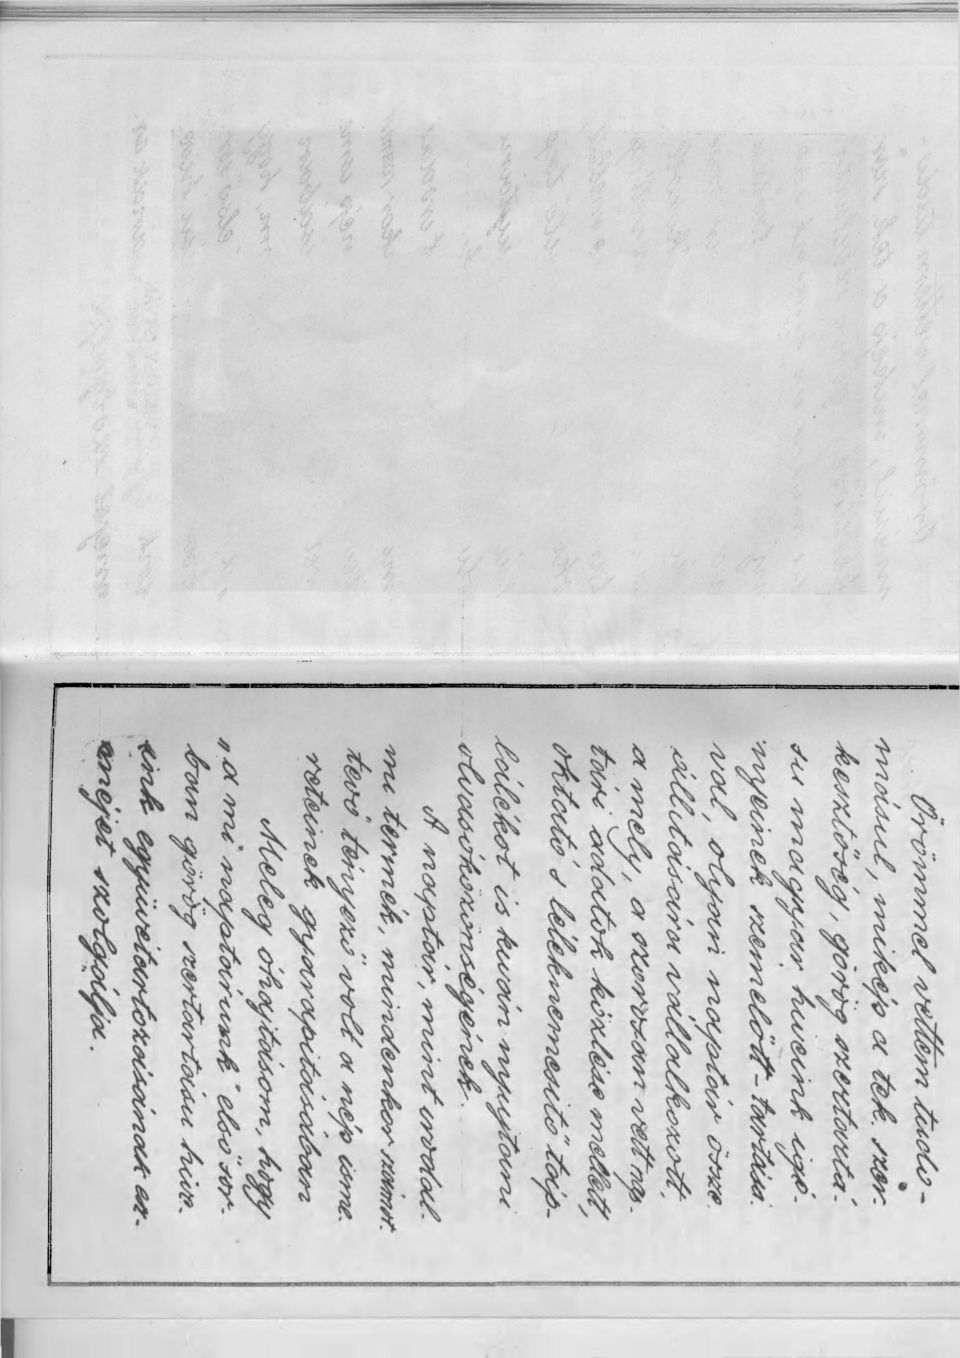 Örömmel vettem tudo-
másul, mikép a tek. szer-
kesztőség, görög szertartá-
su magyar hiveink igé-
nyeinek szemelőtt-tartásá-
val, olyan naptár össze-
állitására vállalkozott,
a mely, a szorosan vett nap-
tári adatok közlése mellett,
oktató s léleknemesitő táp-
lálékot is kiván nyujtani
olvasóközönségének.
A naptár, mint irodal-
mi termék, mindenkor számot-
tevő tényező volt a nép isme-
reteinek gyarapitásában
Meleg óhajtásom, hogy
„a mi naptárunk" elsősor-
ban görög szertartásu hive-
ink együvétartozásának esz-
méjét szolgálja.